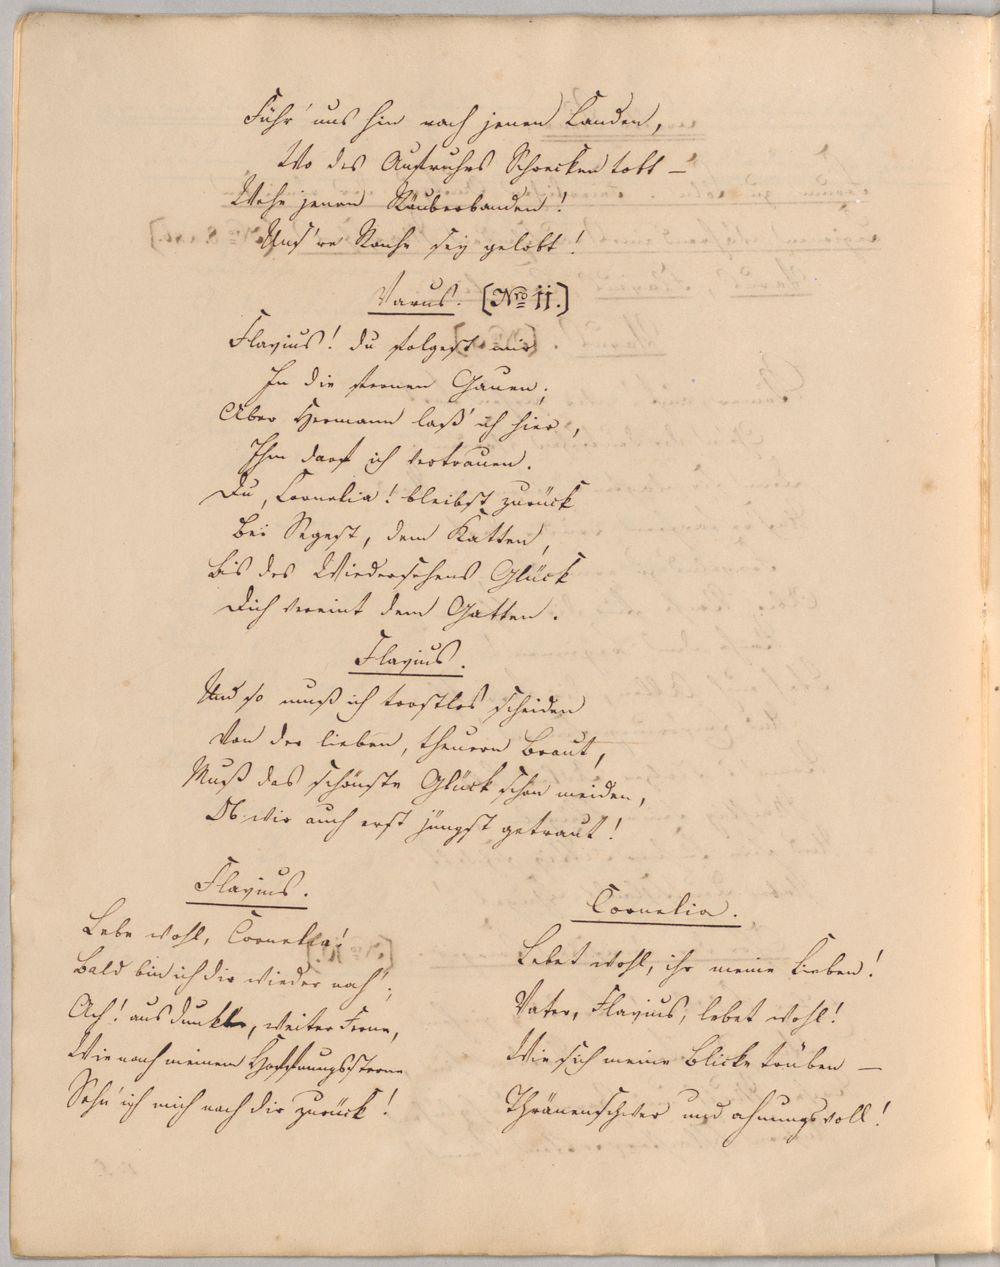 Führ' uns hin nach jenen Landen,
Wo des Aufruhrs Schrecken tobt –
Wehe jenen Räuberbanden!
Uns're Rache sey gelobt!
Varus. [Nro 11.]
Flavius! du folgest mir
In die fernen Gauen;
Aber Hermann laß' ich hier,
Ihm darf ich vertrauen.
Du, Cornelia! bleibst zurück
Bei Segest, dem Katten,
Bis des Wiedersehens Glück
Dich vereint dem Gatten.
Flavius.
Und so muß ich trostlos scheiden
Von der lieben, theuern Braut,
Muß das schönste Glück schon meiden,
Ob wir auch erst jüngst getraut!
Flavius.
Lebe wohl, Cornelia!
Bald bin ich dir wieder nah';
Ach! aus dunkler, weiter Ferne,
Wie nach meinem Hoffnungssterne
Sehn' ich mich nach dir zurück!
Cornelia.
Lebet wohl, ihr meine Lieben!
Vater, Flavius, lebet wohl!
Wie sich meine Blicke trüben –
Thränenschwer und ahnungsvoll!